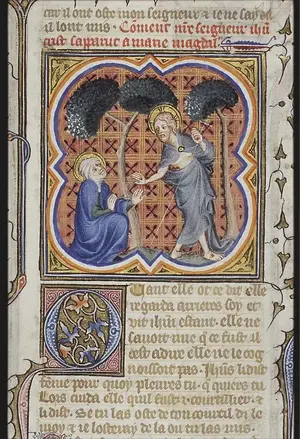 car il ont oste mon seigneur & ie ne say ou
il lont mis. Coment nře seigneur ihū
crist saparut a marie magdal.
Quant elle ot ce dit elle
regarda arrieres soy et
vit ihū estant. elle ne
sauoit une q̄ ce fust. il
cest adire elle ne le cog
noissoit pas. Ihūs li dist
feme pour quoy pleures tu. q̄ quiers tu
Lors cuida elle quil fust .i. courtillier. &
li dist. Se tu las oste de ton courtil di le
moy & ie losteray de la ou tu las mis.